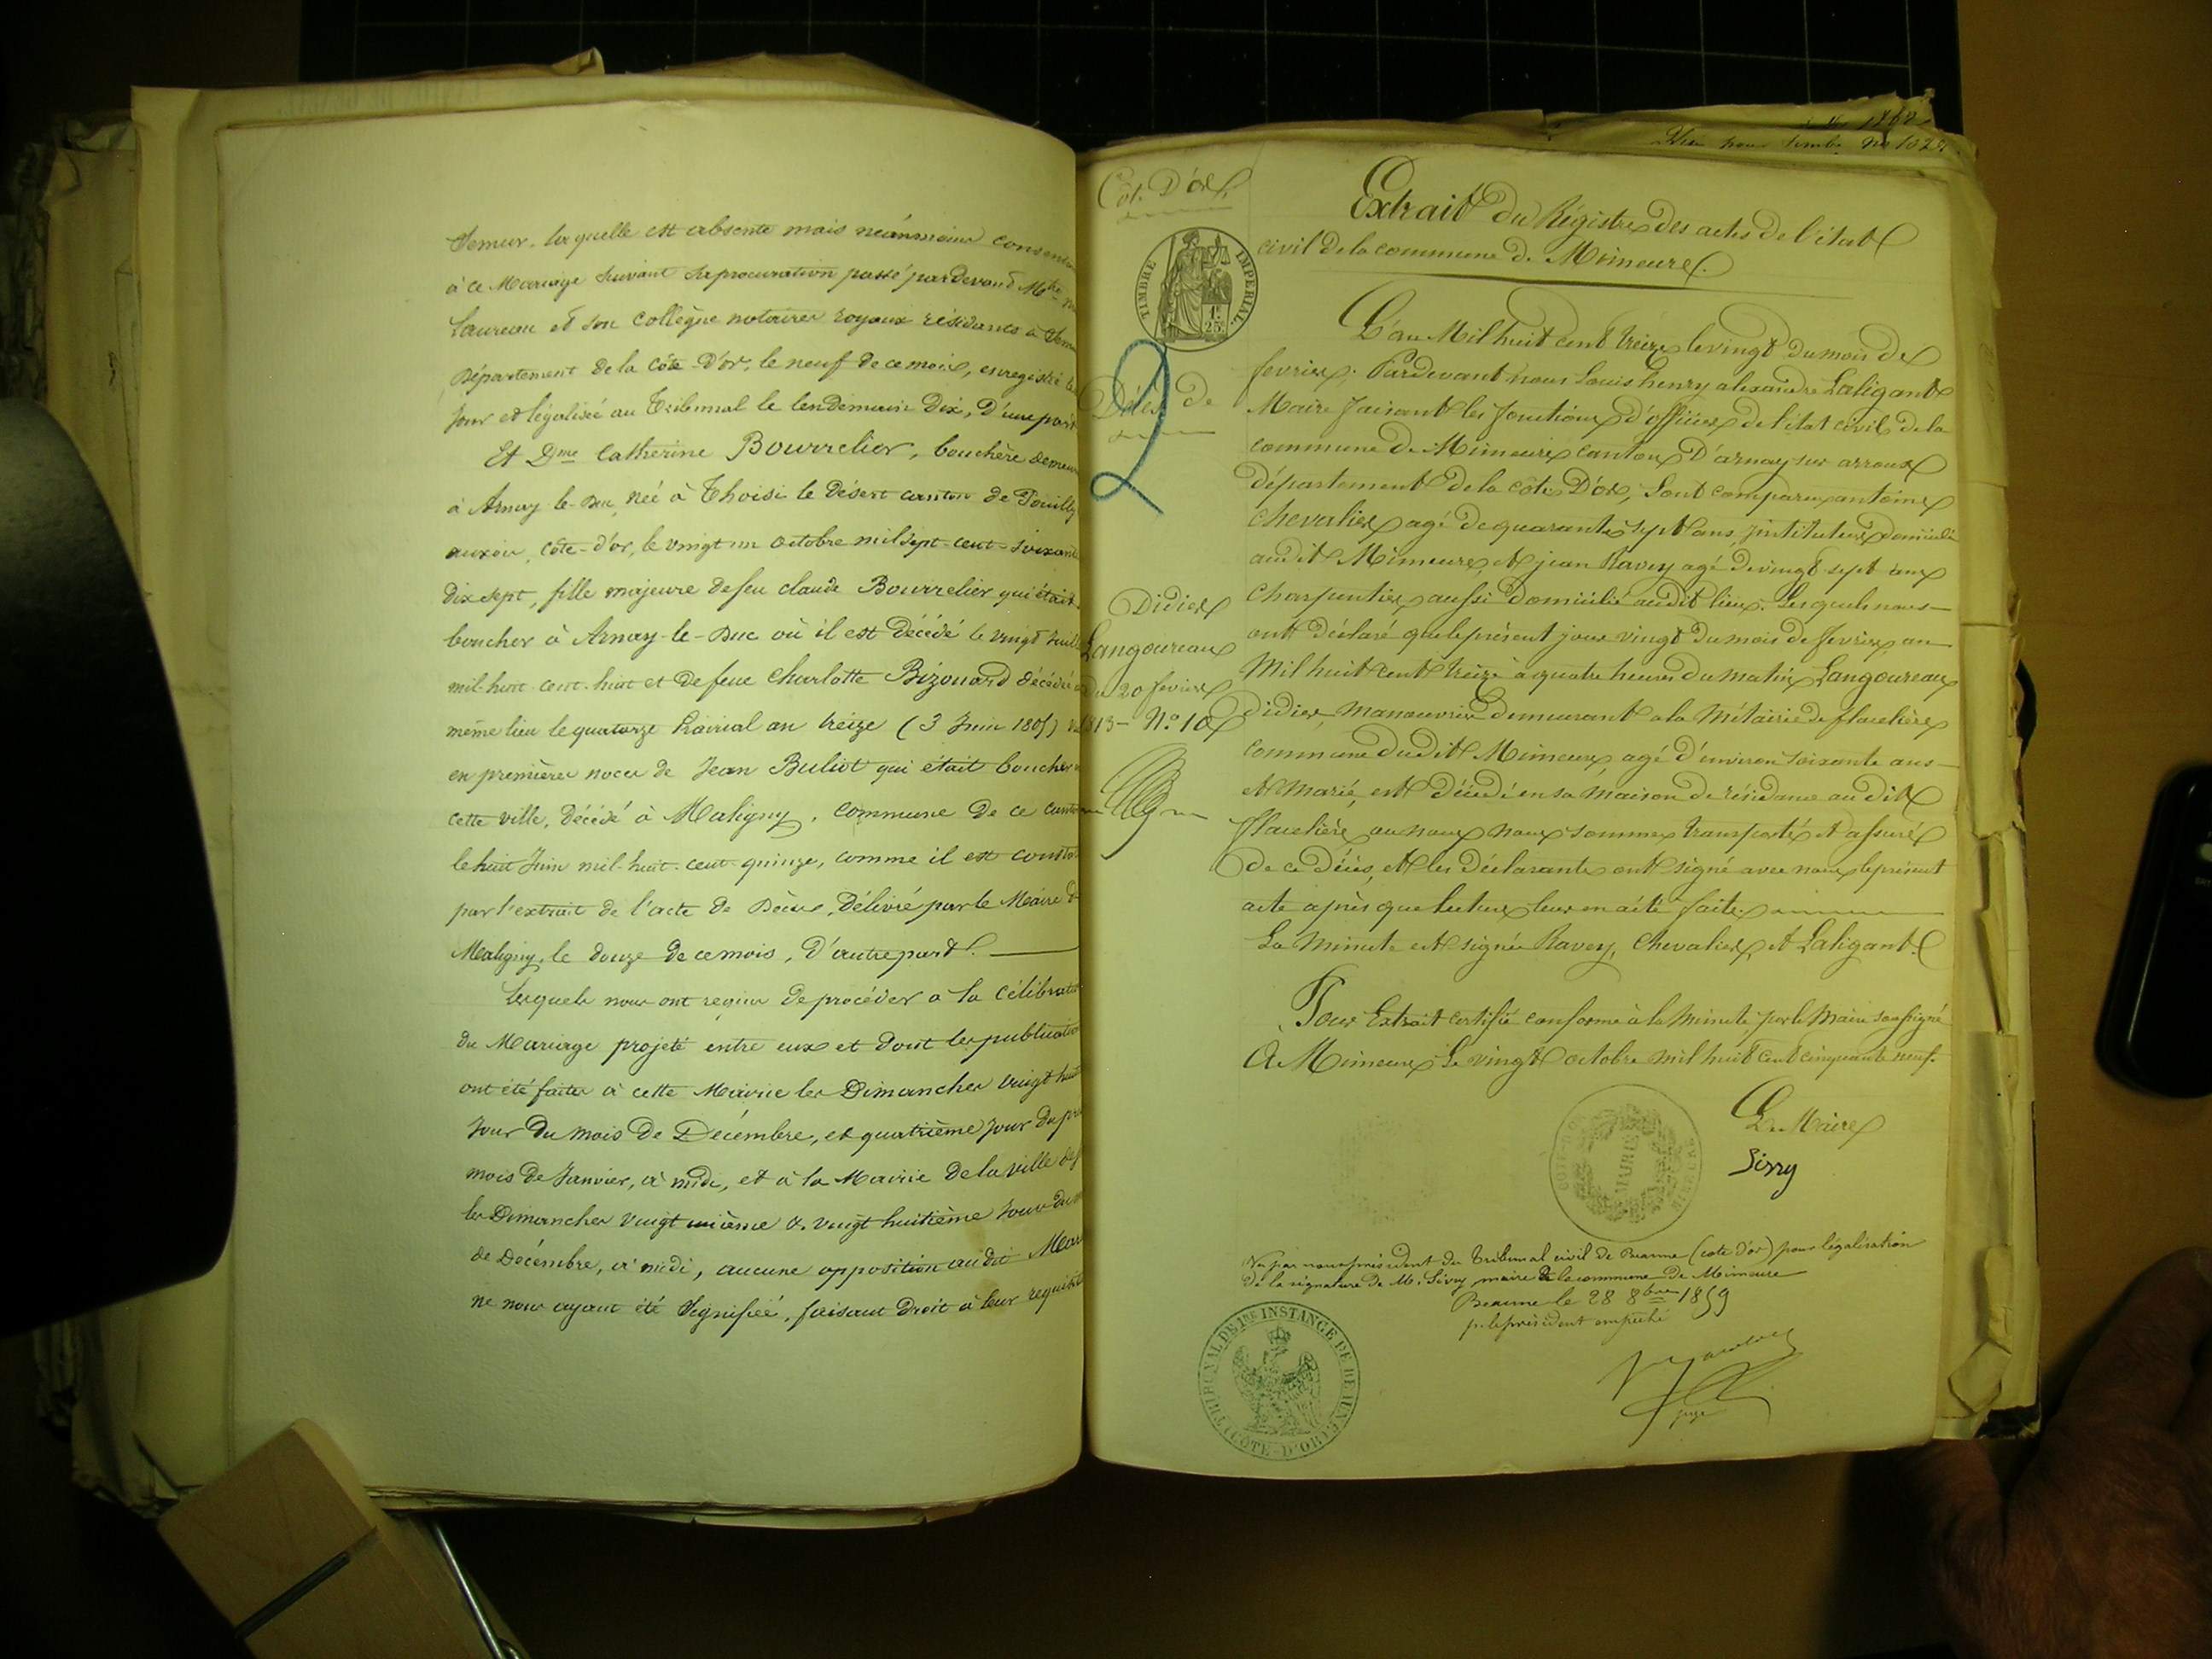 Semur, laquelle est absente mais néánmoins consent
à ce Mariage suivant sa procuration passé pardevant Mtre
Laureau et son collègue notaires royaux résidants à Sem
Département de la Côte-D'or, le neuf de ce mois, enregistré le
jour et légalisée au Tribunal le lendemain dix, D'une part
Et Dme Catherine Bourrelier, bouchère demeu
à Arnay-le-Duc, née à Thoisi le Désert canton de Pouilly
auxois, côte-d'or, le vingt un octobre mil sept-cent-soixante
dix sept, fille majeure de feu claude Bourrelier qui était
boucher à Arnay-le-Duc où il est décédé le vingt Juill
mil-huit-cent-huit et de feue Charlotte Bizouard décédée
même lieu le quatorze Prairial an treize (3 Juin 1805) v
en premières noces de Jean Buliot qui était boucher
cette ville, décédé à Maligny, commune de ce canton
le huit Juin mil-huit-cent-quinze, comme il est consta
par l'extrait de l'acte de Décès, délivré par le Maire d
Maligny, le douze de ce mois, D'autre part.
Lesquels nous ont requis de procéder à la célébrat
du Mariage projeté entre eux et dont les publication
ont été faites à cette Mairie les Dimanches vingt huit
jour du mois de Décembre, et quatrième jour du pr
mois de Janvier, à midi, et à la Mairie de la ville de S
les Dimanches vingt unième & vingt huitième jour du m
de Décembre, à midi, aucune opposition au dit Mar
ne nous ayant été signifiée, faisant droit à leur requisit
1862
Visa pour timbre No 102
Côte D'or
TIMBRE IMPERIAL
1f. 25c.
2
Décès de
Didier
Langoureau
du 20 fevrier
1813 - No. 10
Extrait du Régistre des actes de l'état
civil de la commune de Mimeure.
L'an Mil huit cent treize le vingt du mois de
fevrier, Pardevant nous Louis henry alexandre Laligant
Maire faisant les fonctions d'officier de l'état civil de la
commune de Mimeure canton D'arnay sur arroux
département de la côte D'or, Sont comparus antoine
chevalier agé de quarante sept ans, instituteur domicilié
audit Mimeure, et jean Ravey agé de vingt sept ans
Charpentier, aussi domicilié audit lieu. Lesquels nous
ont déclaré que le présent jour vingt du mois de fevrier an
Mil huit cent treize à quatre heures du matin Langoureau
didier, manouvrier demeurant a la Métairie de flacelière
commune dudit Mimeure, agé d'environ soixante ans
et marié, est décédé en sa maison de résidance au dit
flacelière ou nous nous sommes transporté et assuré
de ce décès, et les déclarants ont signé avec nous le présent
acte après que lecture leur en a été faite.
La Minute est signée Ravey, Chevalier, et Laligant.
Pour Extrait certifié conforme à la Minute par le Maire soussigné
A Mimeure Le vingt octobre mil huit cent cinquante neuf.
Le Maire
Sirry
MAIRIE
Vu par nous président du Tribunal civil de Beaune (cote d'or) pour légalisation
de la signature de M. Sivry maire de la commune de Mimeure
Beaune le 28 8bre 1859
p. le président empeché
juge
TRIBUNAL DE 1RE INSTANCE DE BEAUNE (CÔTE-D'OR)